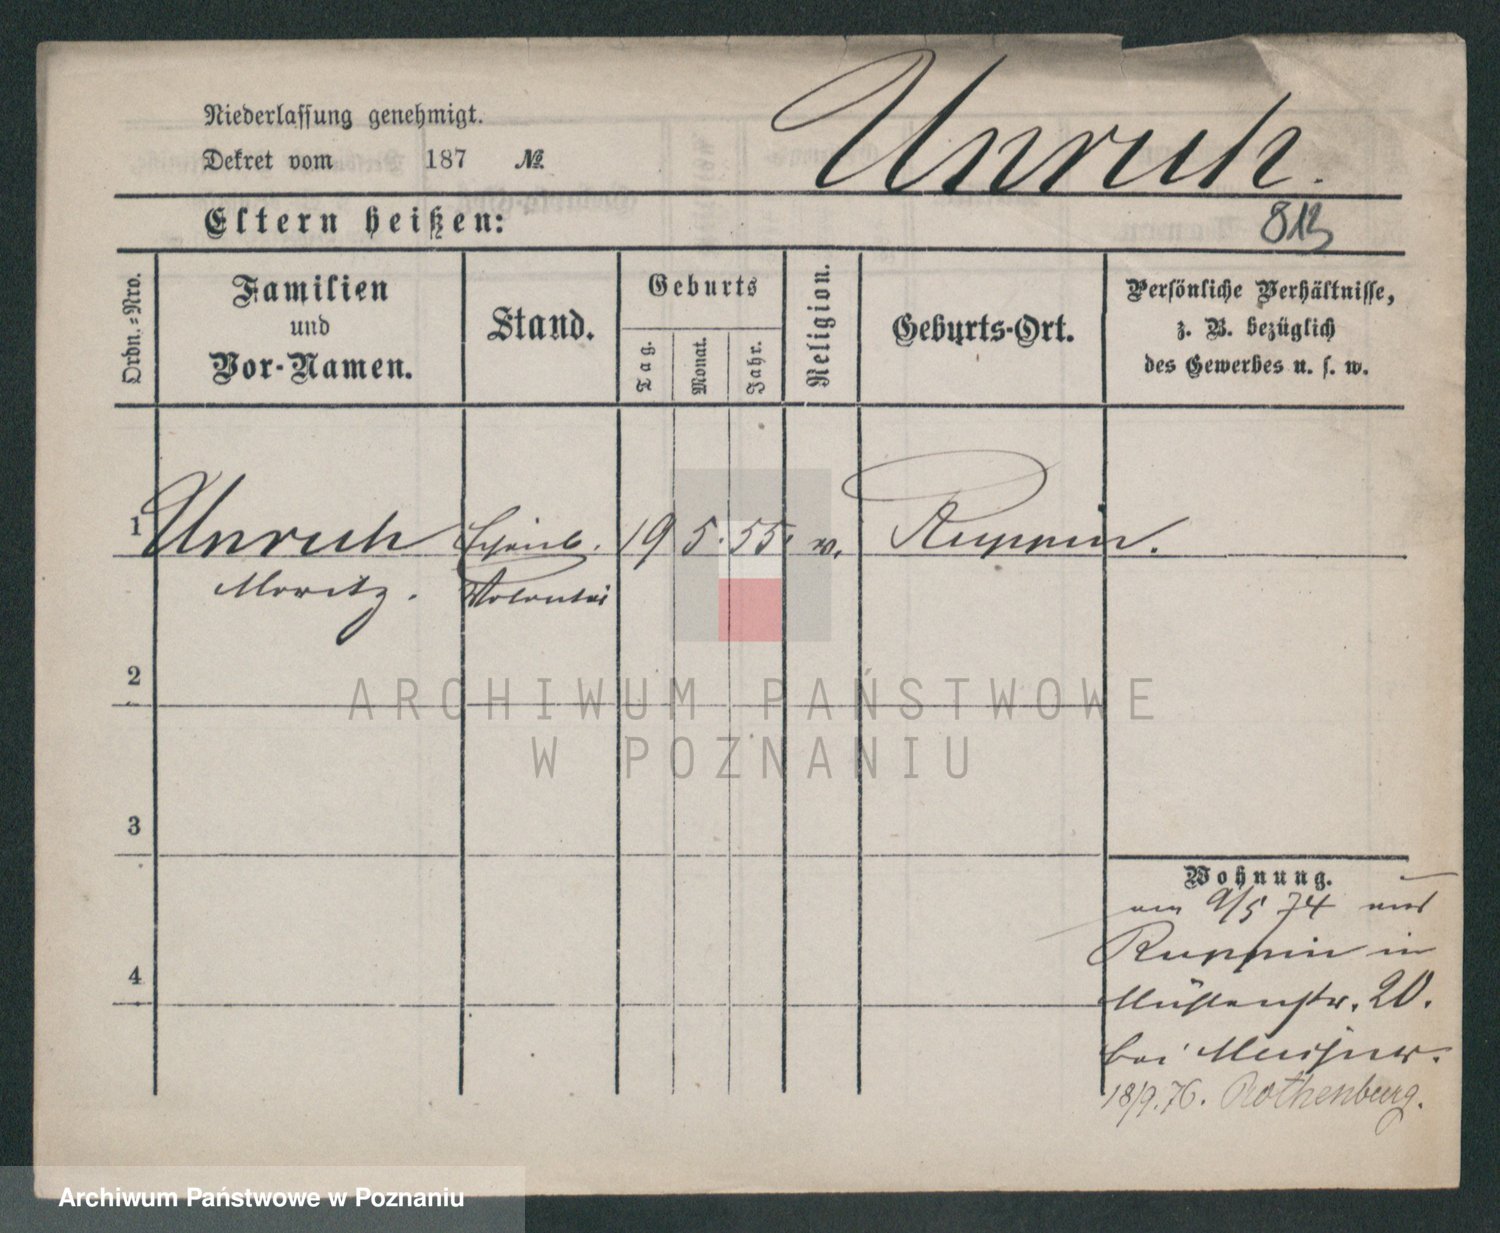 Unruh.
Niederlassung genehmigt.
Dekret vom 187 №
Eltern heißen:
813
Ordn.-Nro.
Familien
und
Vor-Namen.
Stand.
Geburts
Tag.
Monat.
Jahr.
Religion.
Geburts-Ort.
Persönliche Verhältnisse,
z. B. bezüglich
des Gewerbes u. s. w.
1 Unruh 19 5. 55. Ruppin.
Moritz.
2
3
4
Wohnung.
9/5 74 aus
Ruppin in
Mühlenstr. 20.
bei
18/9. 76. Rothenburg.
ARCHIWUM PAŃSTWOWE
W POZNANIU
Archiwum Państwowe w Poznaniu